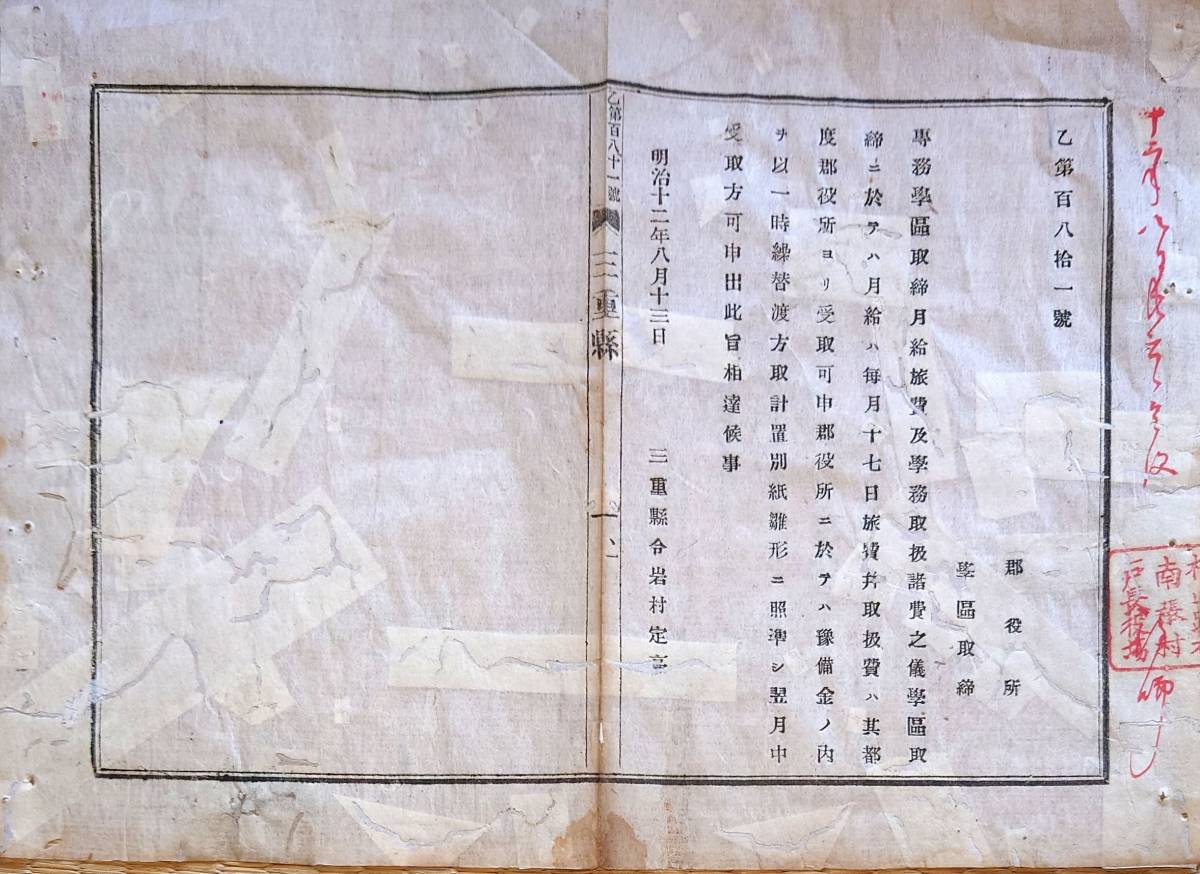 乙第百八拾一號
郡役所
學區取締
專務學區取締月給旅費及學務取扱諸費之儀學區取
締ニ於テハ月給ハ每月十七日旅費幷取扱費ハ其都
度郡役所ヨリ受取可申郡役所ニ於テハ豫備金ノ內
ヲ以一時繰替渡方取計置別紙雛形ニ照準シ翌月中
受取方可申出此旨相達候事
明治十二年八月十三日
三重縣令岩村定高
乙第百八十一號
三重縣
一
南張村
戶長役場